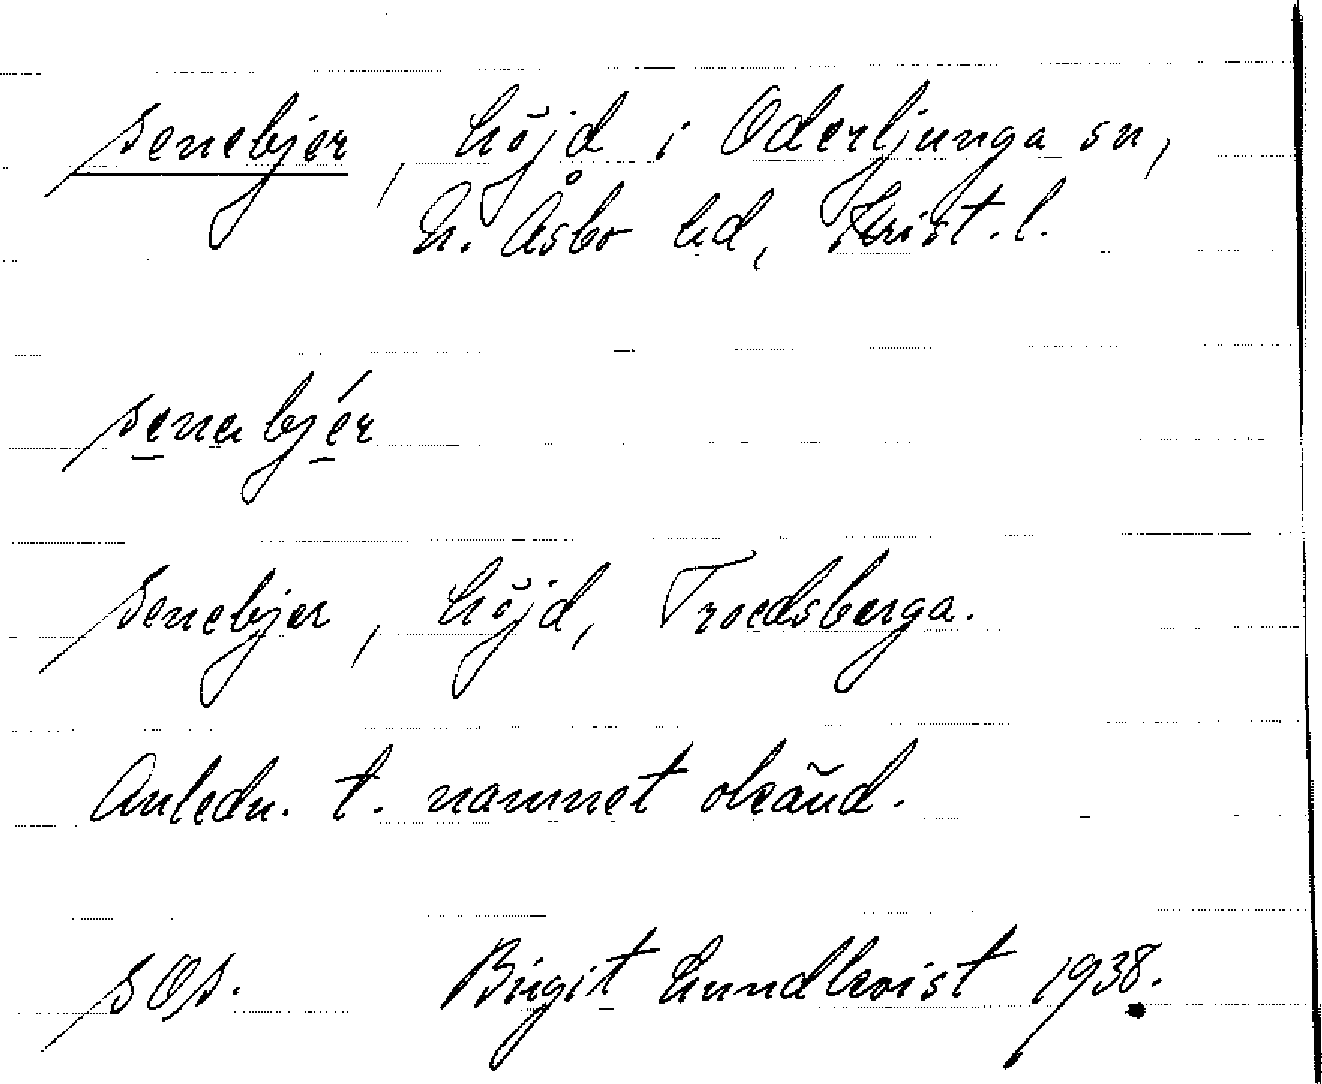 Senebjer, höjd i Oderljunga sn,
N. Åsbo hd, Krist. l.
senabjér
Senebjer, höjd, Troedsberga.
Anledn. t. namnet okänd.
SOS. Birgit Lundkvist 1938.